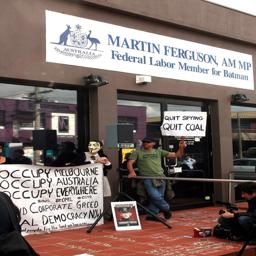 AUSTRALIA
MARTIN FERGUSON, AM MP
Federal Labor Member for Batman
QUIT SPYING
QUIT COAL
OCCUPY MELBOURNE
OCCUPY AUSTRALIA
OCCUPY EVERYWHERE
END CORPORATE GREED
REAL DEMOCRACY NOW